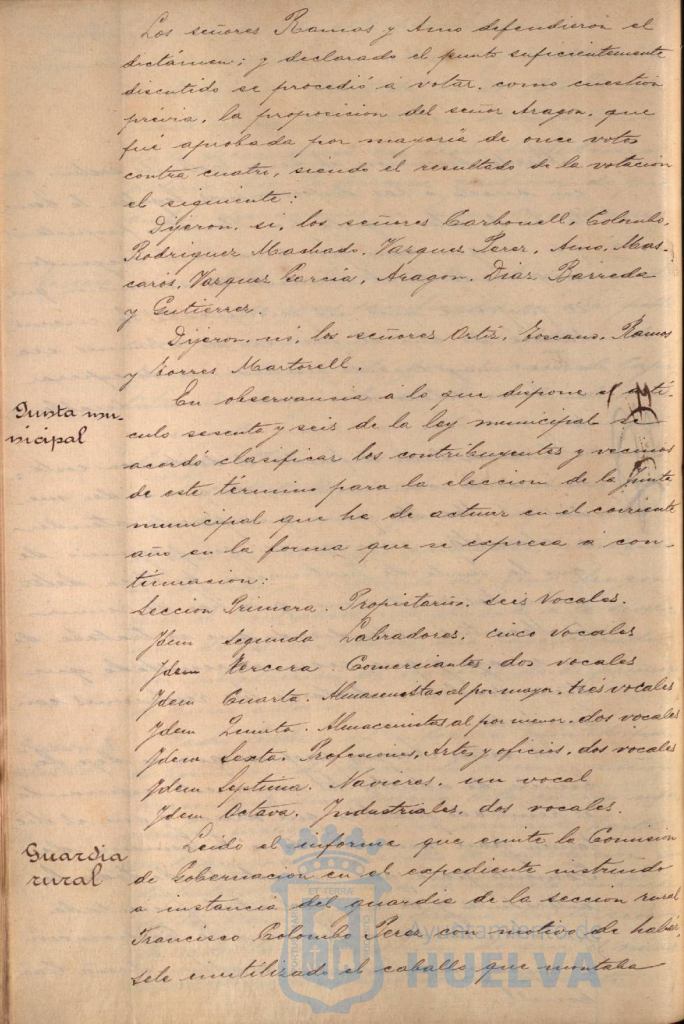 Los señores Ramos y Amo defendieron el
dictámen; y declarado el punto suficientemente
discutido se procedió á votar, como cuestión
prévia, la proposicion del señor Aragon, que
fué aprobada por mayoría de once votos
contra cuatro, siendo el resultado de la votacion
el siguiente:
Dijeron, si, los señores Carbonell, Colombo,
Rodriguez Machado, Vazquez Perez, Amo, Mas-
carós, Vazquez García, Aragon, Diaz Barreda
y Gutierrez.
Dijeron, nó, los señores Ortiz, Toscano, Ramos
y Torres Martorell.
Junta mu-
nicipal
En observansia á lo que dispone el artí-
culo sesenta y seis de la ley municipal se
acordó clasificar los contribuyentes y vecinos
de este término para la eleccion de la Junta
municipal que ha de actuar en el corriente
año en la forma que se expresa á con-
tinuacion:
Seccion Primera. Propietarios, seis Vocales.
Idem Segunda Labradores, cinco vocales
Idem Tercera. Comerciantes, dos vocales
Idem Cuarta. Almacenistas al por mayor, tres vocales
Idem Quinta. Almacenistas al por menor, dos vocales
Idem Sexta. Profesiones, Artes y oficios, dos vocales
Idem Septima. Navieros, un vocal
Idem Octava. Industriales, dos vocales.
Guardia
rural
Leido el informe que emite la Comision
de Gobernacion en el expediente instruido
a instancia del guardia de la seccion rural
Francisco Colombo Perez con motivo de habér-
sele inutilizado el caballo que montaba
Ayuntamiento de
HUELVA